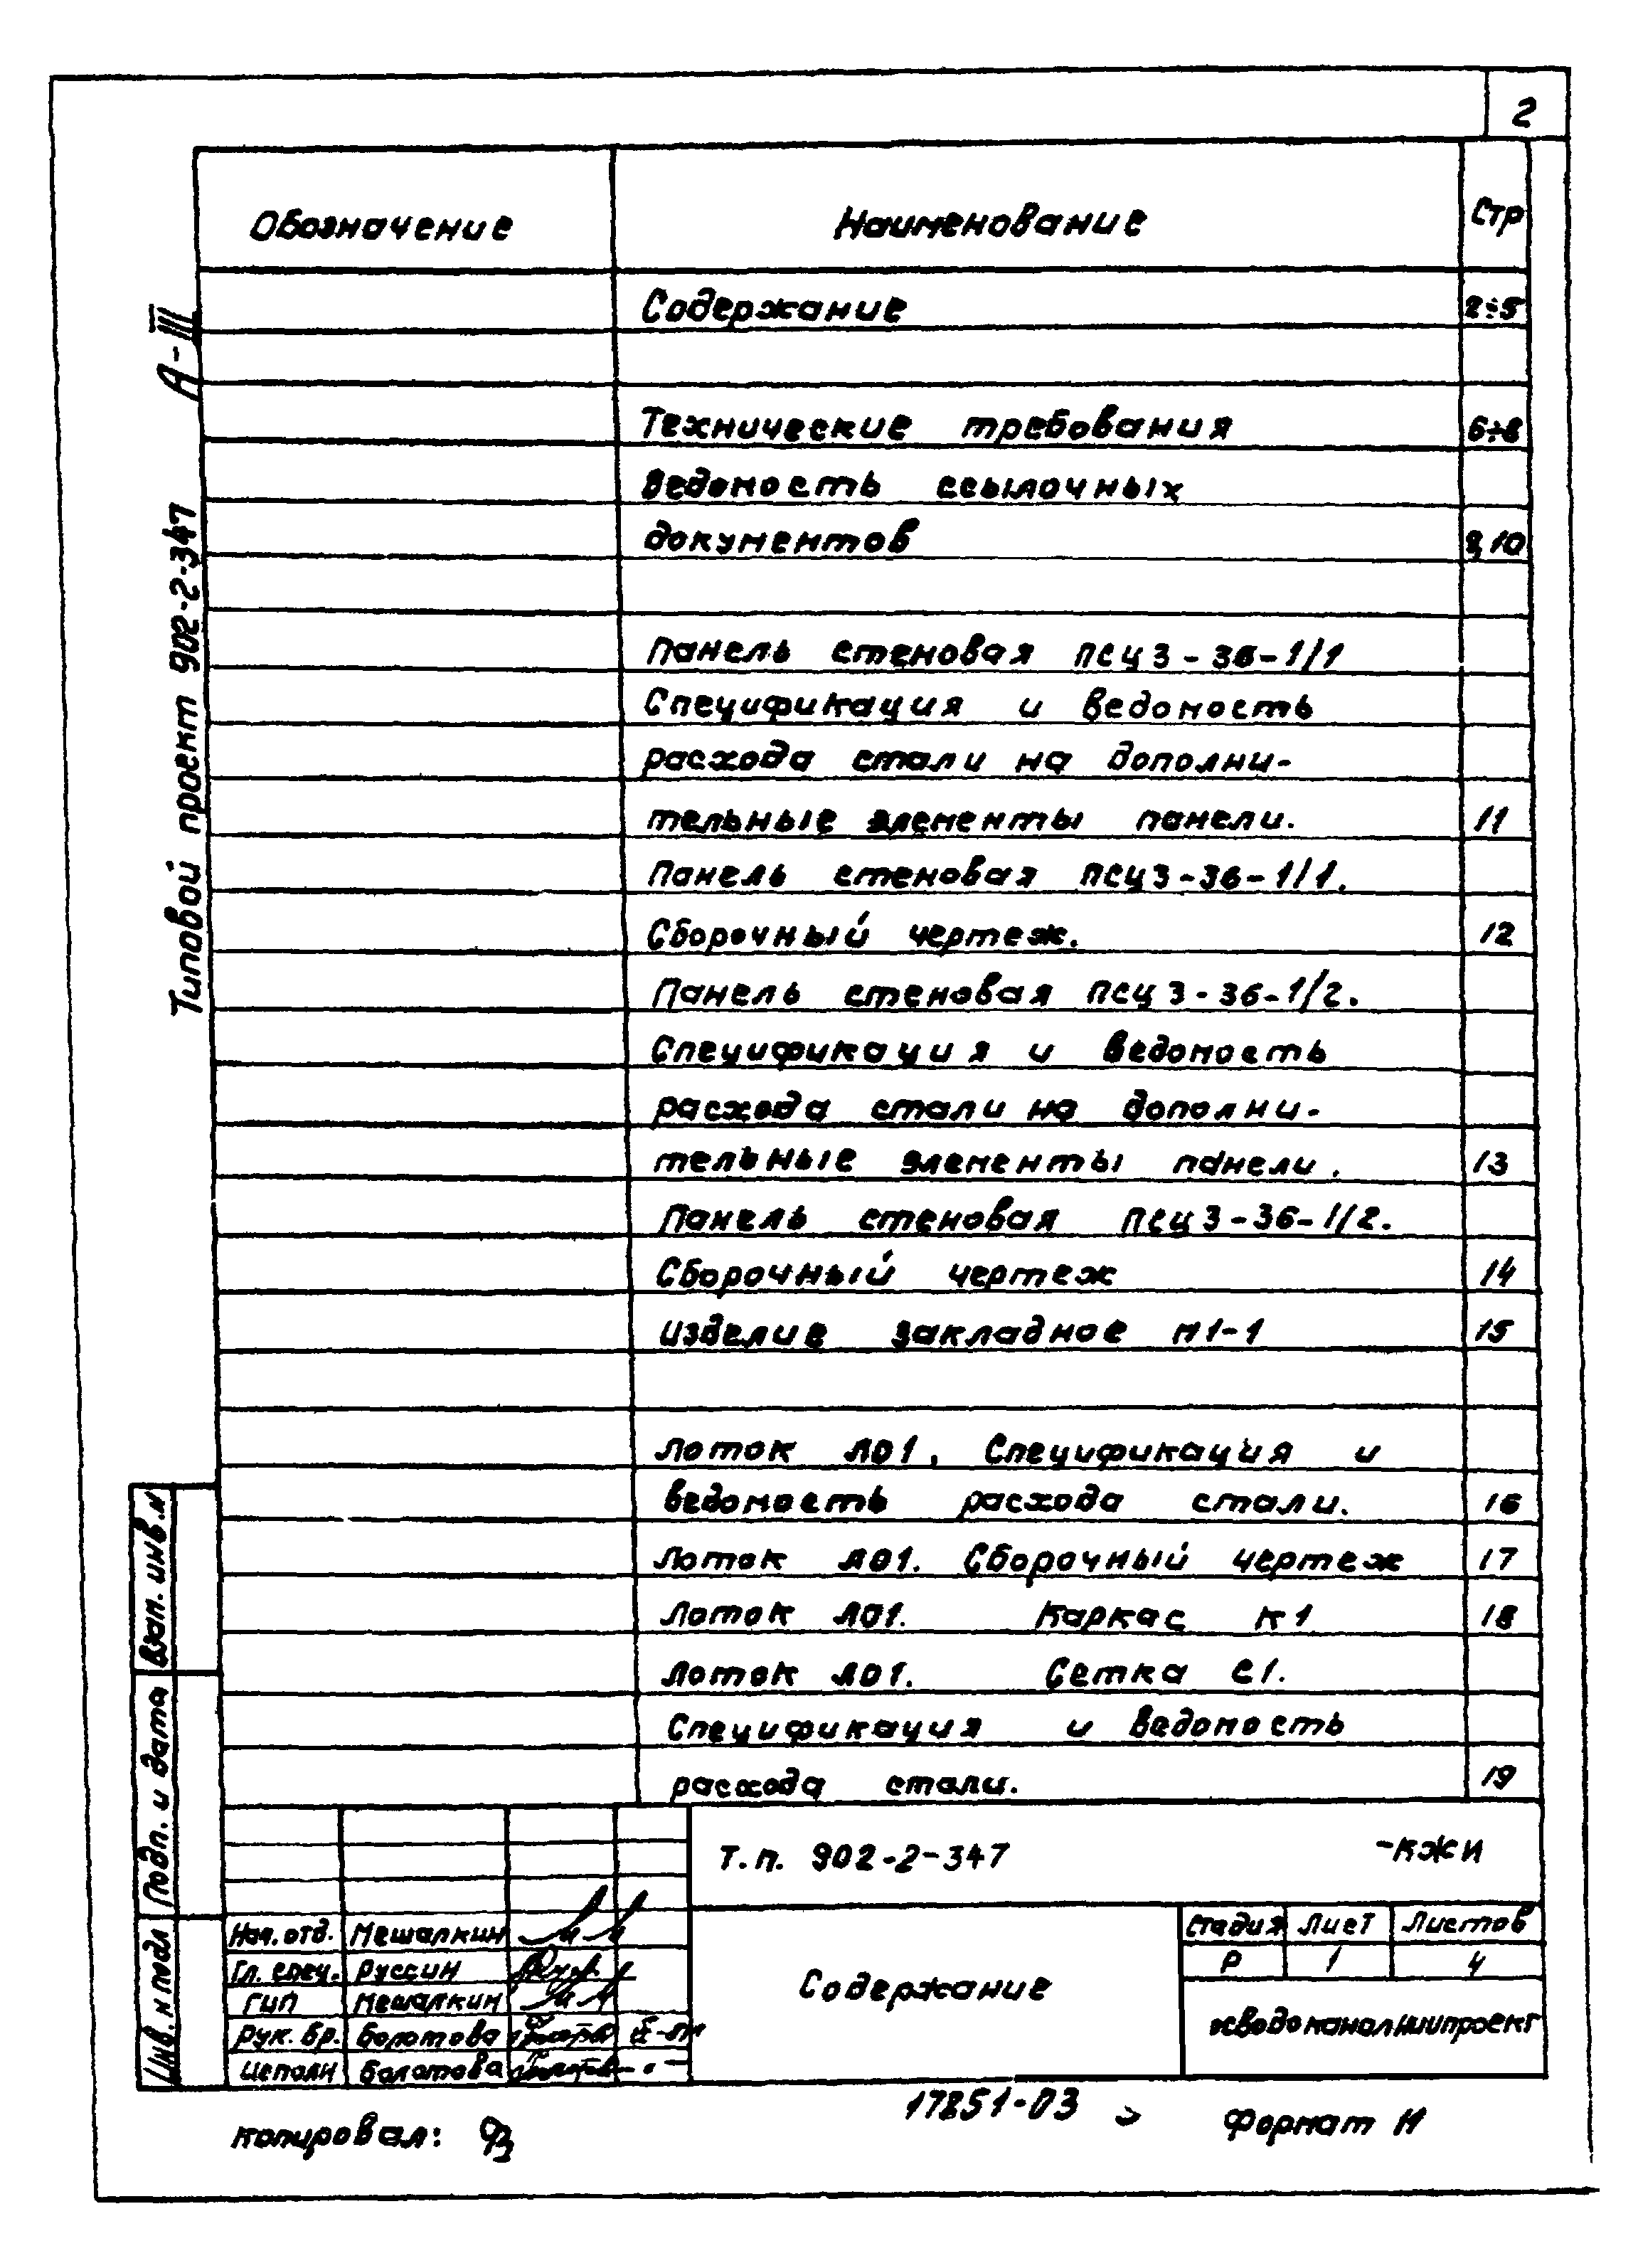 2
Обозначение Наименование Стр
Содержание 2÷5
Технические требования 6÷8
Ведомость ссылочных
документов 9,10
Панель стеновая ПСЦ3-36-1/1
Спецификация и ведомость
расхода стали на дополни-
тельные элементы панели. 11
Панель стеновая ПСЦ3-36-1/1.
Сборочный чертеж. 12
Панель стеновая ПСЦ3-36-1/2.
Спецификация и ведомость
расхода стали на дополни-
тельные элементы панели. 13
Панель стеновая ПСЦ3-36-1/2.
Сборочный чертеж 14
Изделие закладное М1-1 15
Лоток Л01. Спецификация и
ведомость расхода стали. 16
Лоток Л01. Сборочный чертеж 17
Лоток Л01. Каркас К1 18
Лоток Л01. Сетка С1.
Спецификация и ведомость
расхода стали. 19
Типовой проект 902-2-347 А-III
Взам. инв. N
Подп. и дата
Инв. N подл
Т.п. 902-2-347 -КЖИ
Нач. отд. Мешалкин
Гл. спец. Руссин
ГИП Мешалкин
Рук. бр. Болотова
Исполн Болотова
Содержание
Стадия Лист Листов
Р 1 4
17851-03
Копировал:
Формат 11